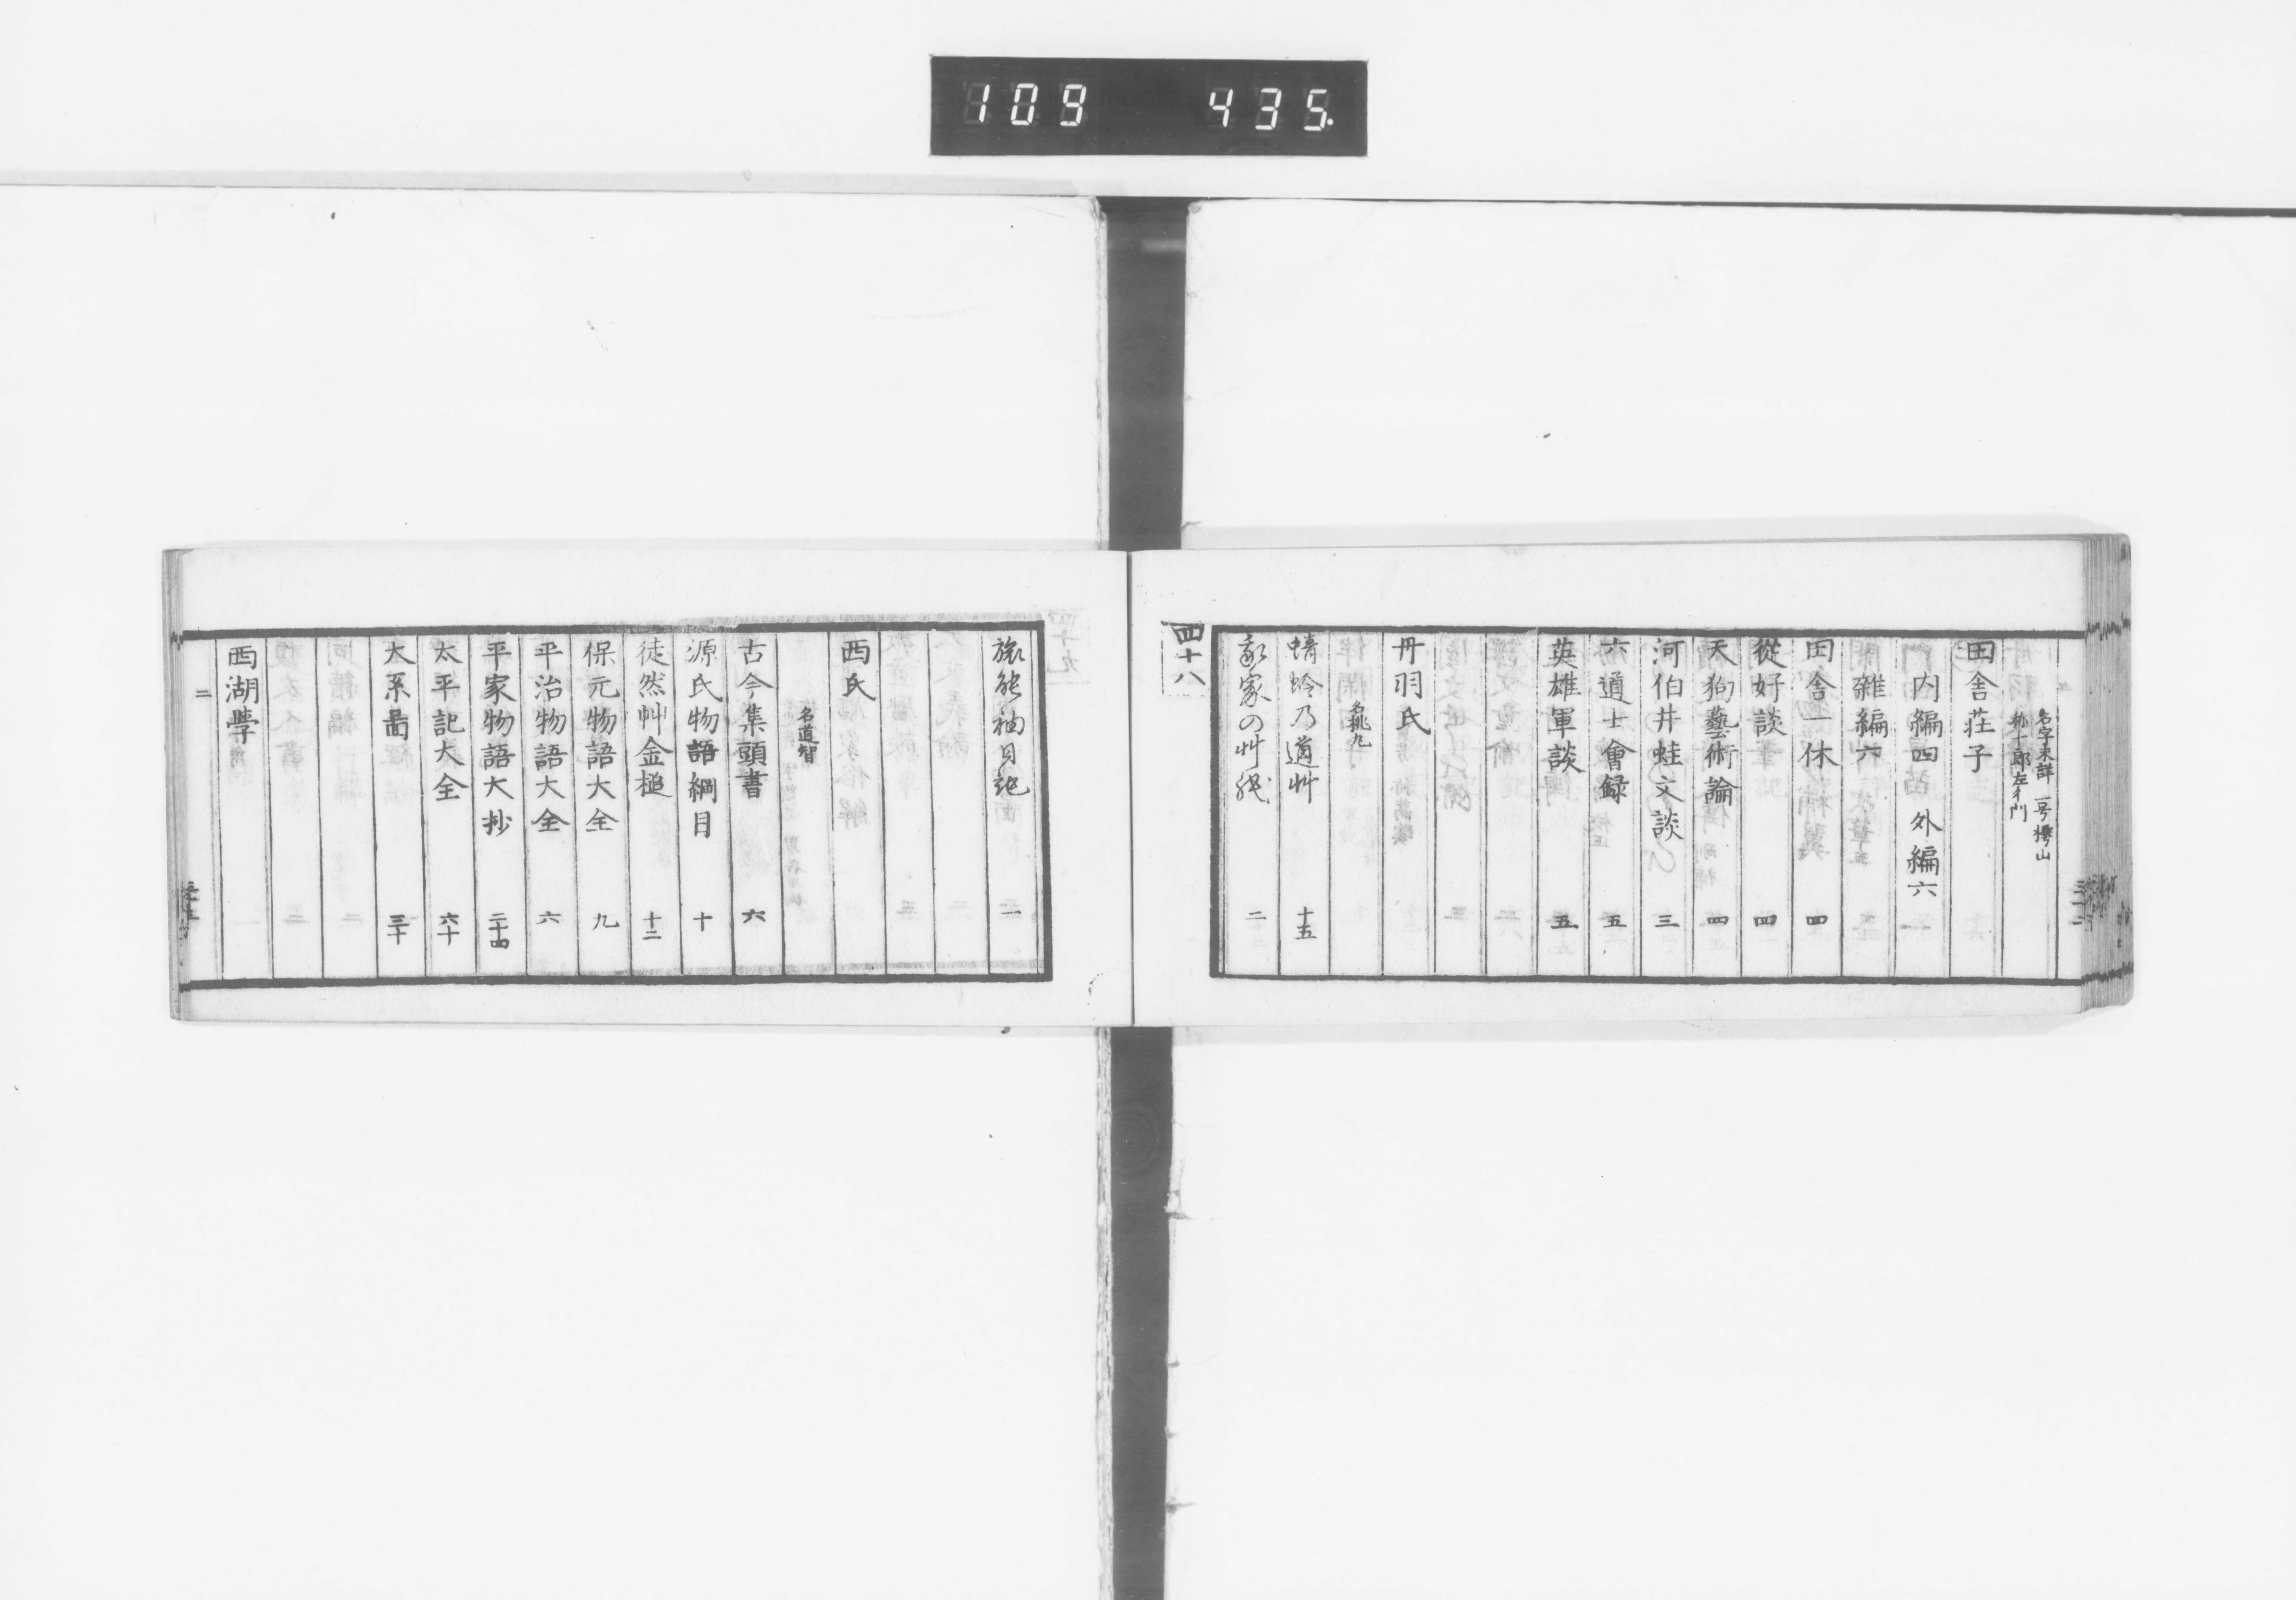 109 435.
名字未詳 一号樗山
称十郎左エ門
田舎荘子
内編四 外編六
雑編六
田舎一休 四
從好談 四
天狗藝術論 四
河伯井蛙文談 三
六道士會録 五
英雄軍談 五
丹羽氏
名桃九
蜻蛉乃道艸 十五
家の艸 二
四十八
旅 袖日記 一
西氏
名道智
古今集頭書 六
源氏物語綱目 十
徒然艸金槌 十二
保元物語大全 九
平治物語大全 六
平家物語大抄 二十四
太平記大全 六十
大系啚 三十
西湖學
二